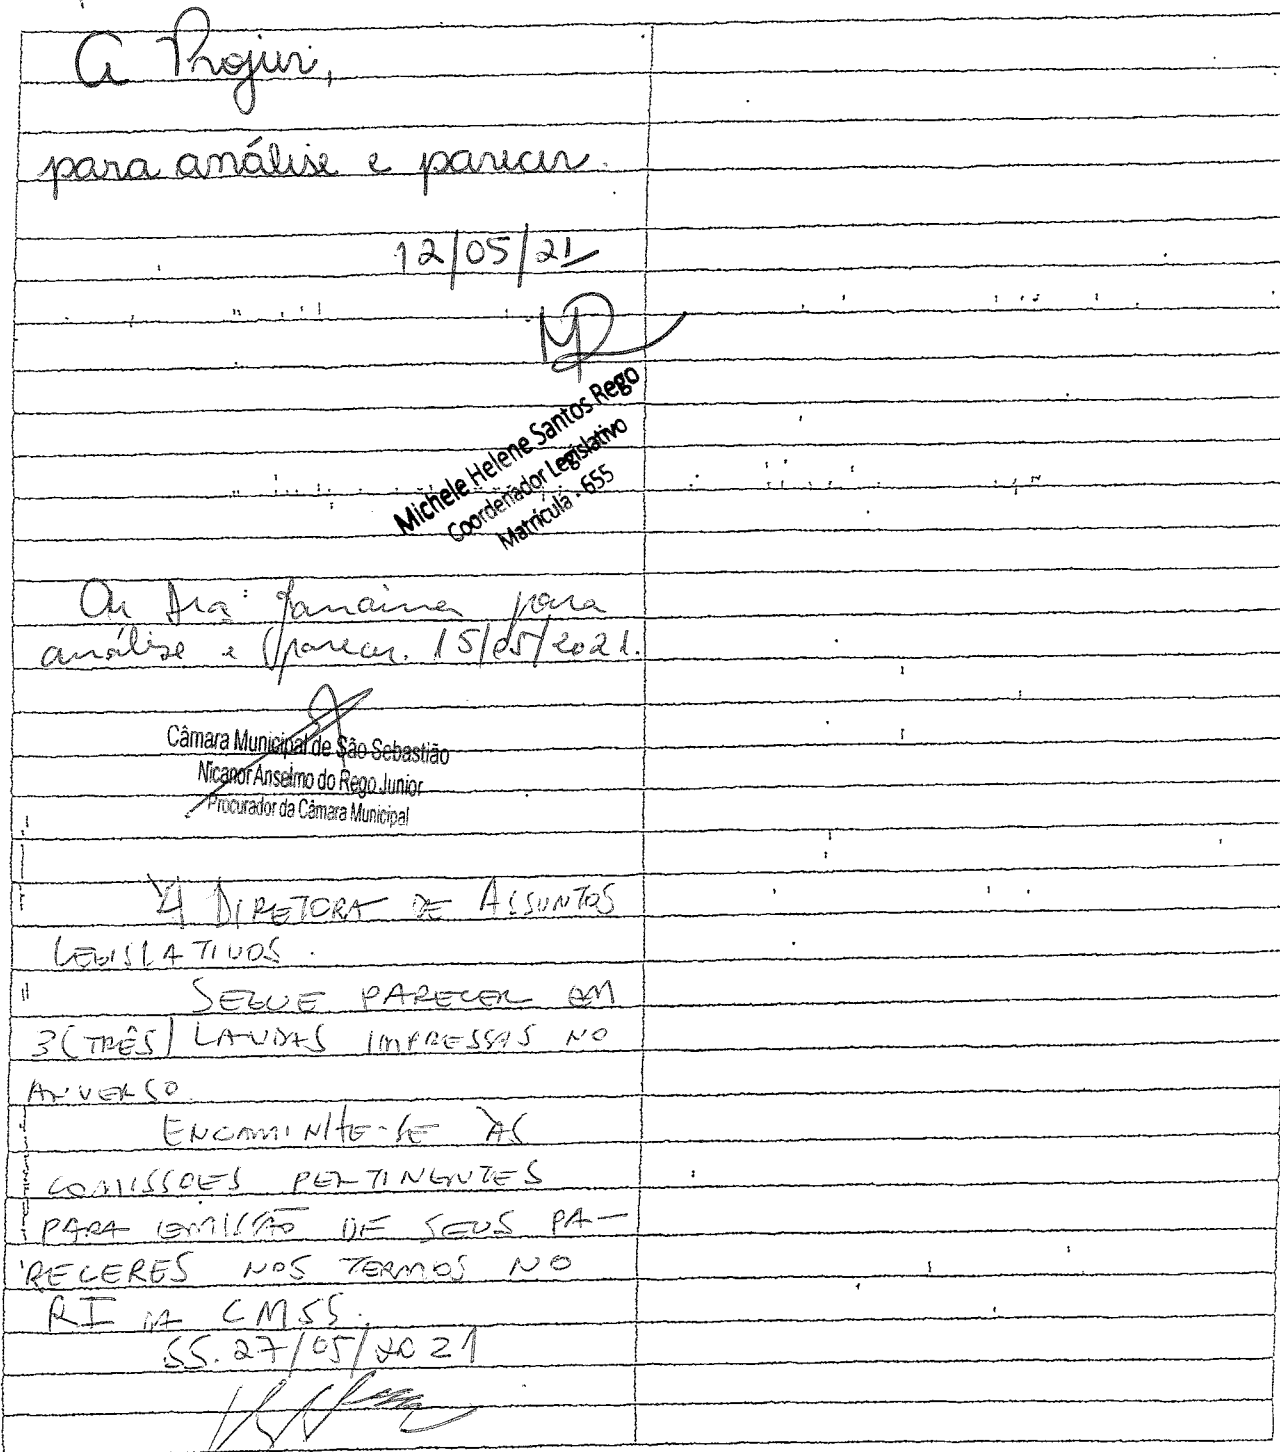 A Projur,
para análise e parecer.
12/05/21
Michele Helene Santos Rego
Coordenador Legislativo
Matrícula - 655
Dra Janaina para
análise e parecer. 15/05/2021.
Câmara Municipal de São Sebastião
Nicanor Anselmo do Rego Junior
Procurador da Câmara Municipal
À DIRETORA DE ASSUNTOS
LEGISLATIVOS.
SEGUE PARECER EM
3 (TRÊS) LAUDAS IMPRESSAS NO
ANVERSO.
ENCAMINHE-SE ÀS
COMISSÕES PERTINENTES
PARA EMISSÃO DE SEUS PA-
RECERES NOS TERMOS NO
RI DA CMSS.
SS. 27/05/2021